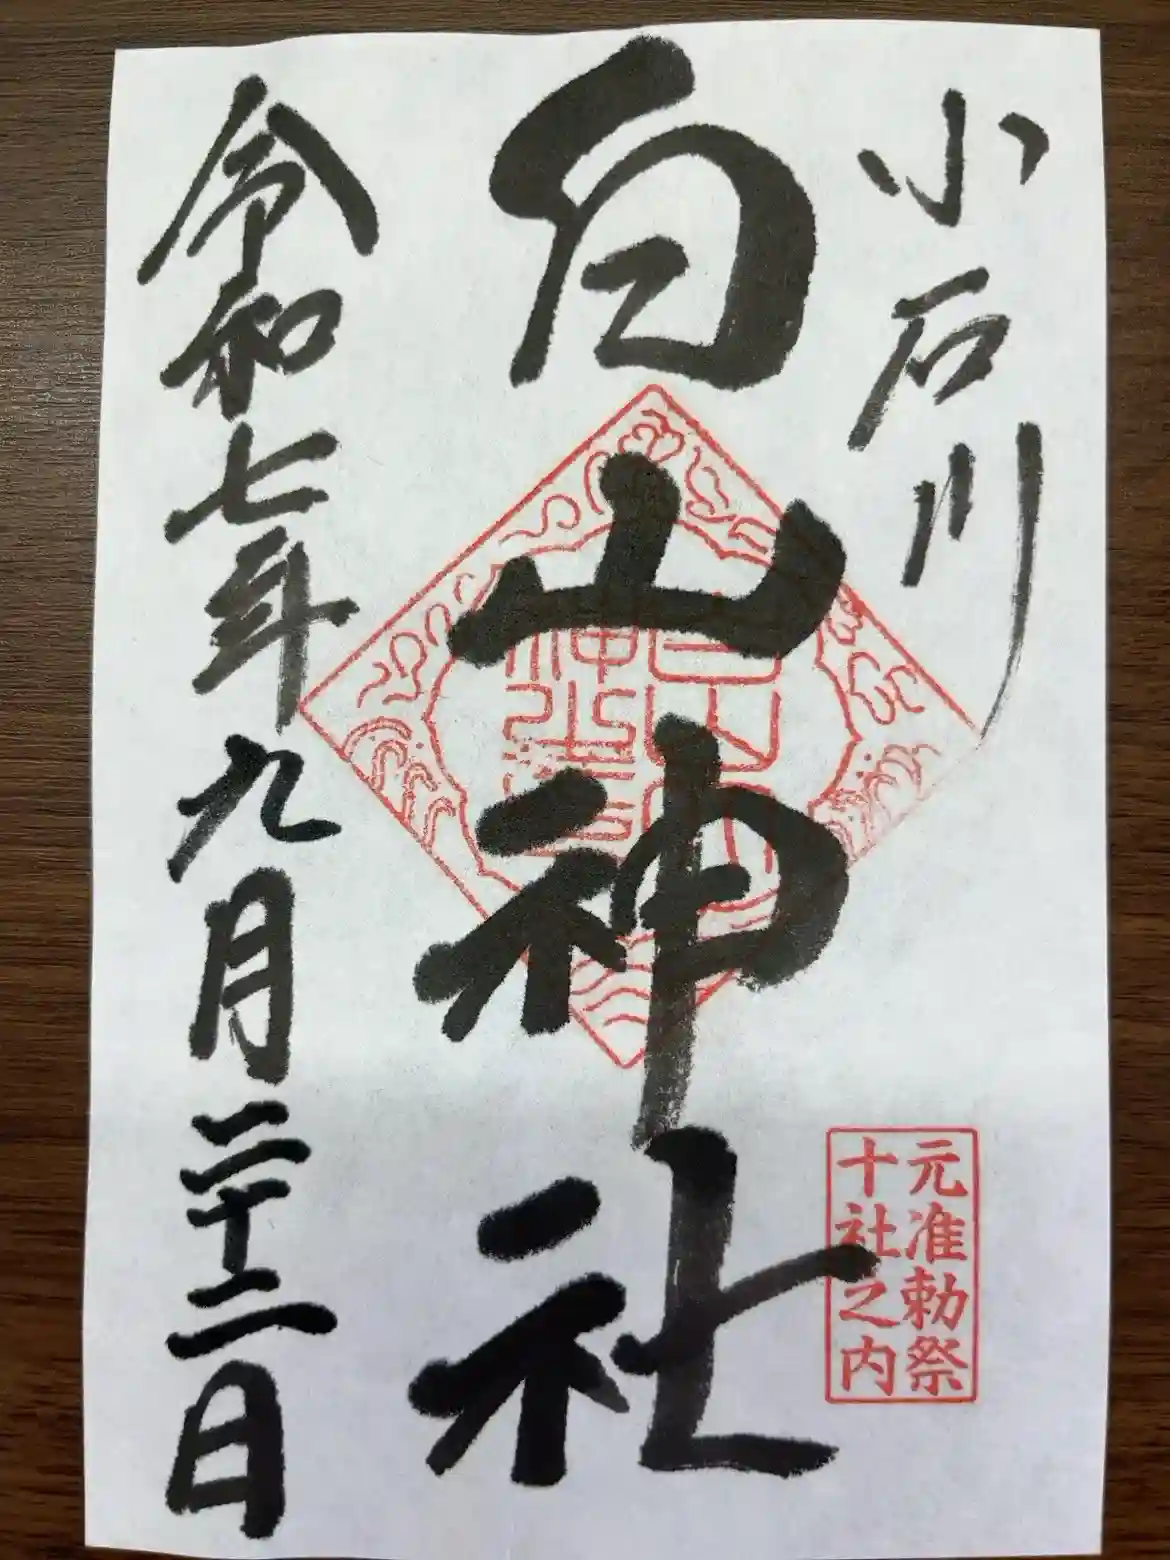 小石川
元准勅祭
十社之内
白山神社
令和七年九月二十二日